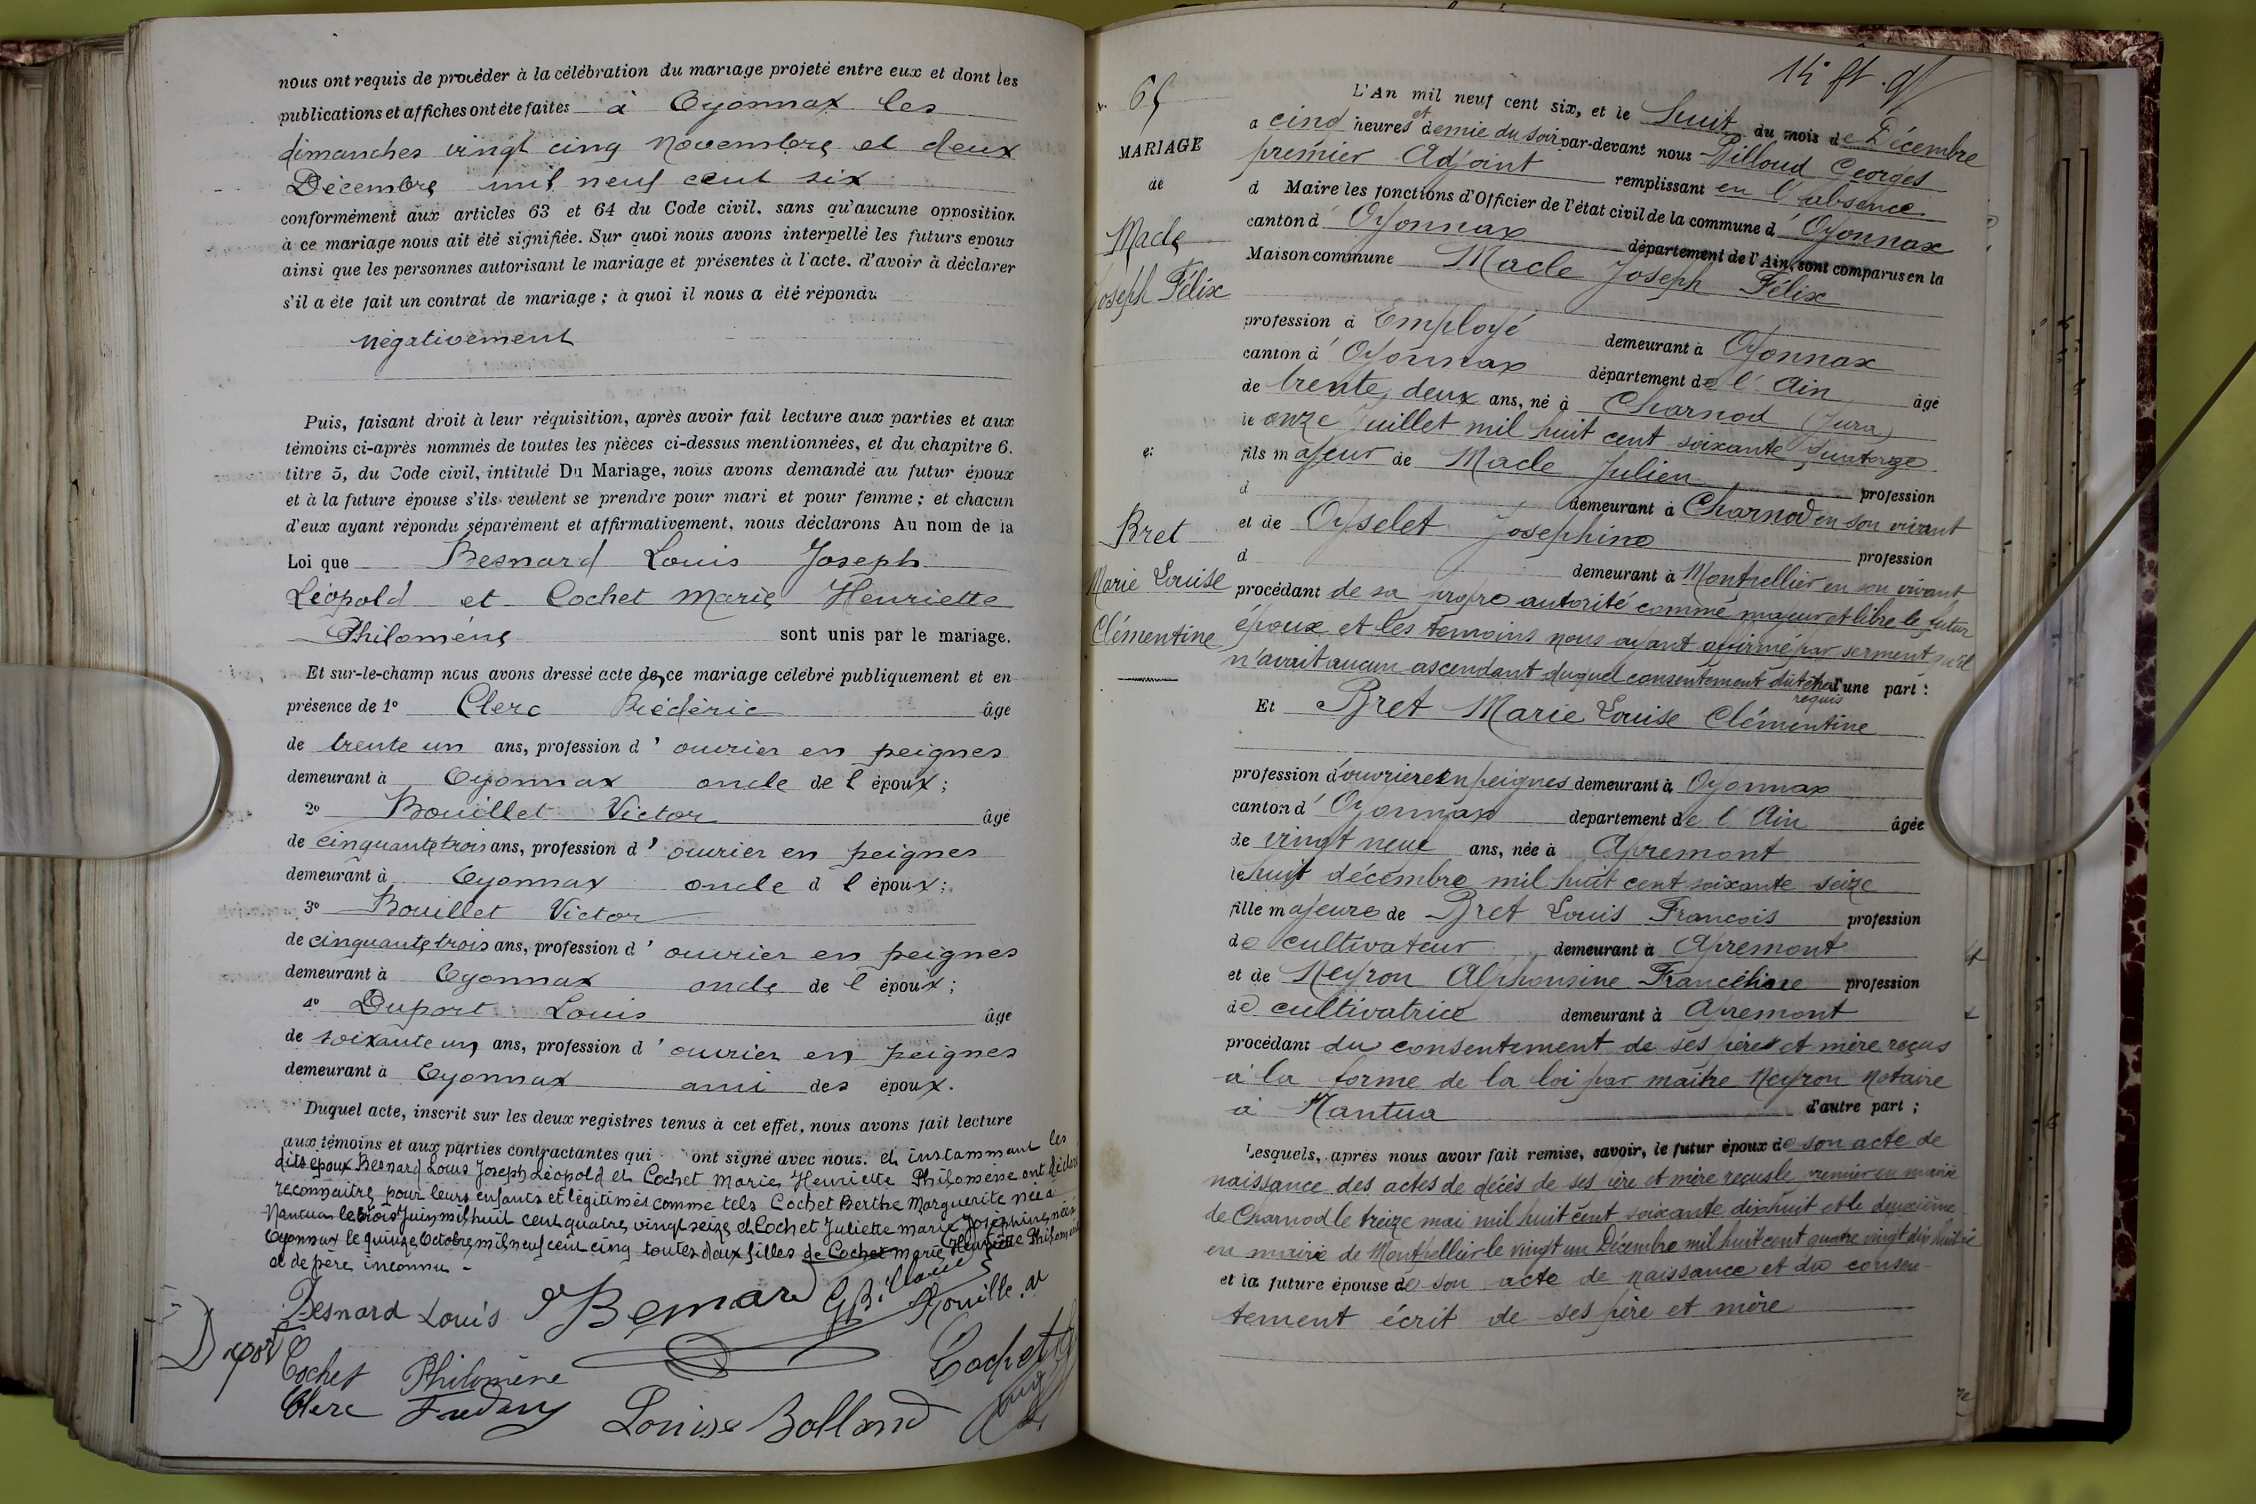 nous ont requis de procéder à la célébration du mariage projeté entre eux et dont les
publications et affiches ont été faites à Oyonnax les
dimanches vingt cinq Novembre et deux
Décembre mil neuf cent six
conformément aux articles 63 et 64 du Code civil, sans qu'aucune opposition
à ce mariage nous ait été signifiée. Sur quoi nous avons interpellé les futurs epoux
ainsi que les personnes autorisant le mariage et présentes à l'acte, d'avoir à déclarer
s'il a été fait un contrat de mariage ; à quoi il nous a été répondu
négativement
Puis, faisant droit à leur réquisition, après avoir fait lecture aux parties et aux
témoins ci-après nommés de toutes les pièces ci-dessus mentionnées, et du chapitre 6,
titre 5, du Code civil, intitulé Du Mariage, nous avons demandé au futur époux
et à la future épouse s'ils veulent se prendre pour mari et pour femme ; et chacun
d'eux ayant répondu séparément et affirmativement, nous déclarons Au nom de la
Loi que Besnard Louis Joseph
Léopold et Cochet Marie Henriette
Philomène sont unis par le mariage.
Et sur-le-champ nous avons dressé acte de ce mariage célébré publiquement et en
présence de 1º Clerc Frédéric âgé
de trente un ans, profession d'ouvrier en peignes
demeurant à Oyonnax oncle de l'époux ;
2º Bouillet Victor âgé
de cinquante trois ans, profession d'ouvrier en peignes
demeurant à Oyonnax oncle d l'époux ;
3º Bouillet Victor
de cinquante trois ans, profession d'ouvrier en peignes
demeurant à Oyonnax oncle de l'époux ;
4º Duport Louis âgé
de soixante un ans, profession d'ouvrier en peignes
demeurant à Oyonnax ami des époux.
Duquel acte, inscrit sur les deux registres tenus à cet effet, nous avons fait lecture
aux témoins et aux parties contractantes qui ont signé avec nous. et instamment les
dits époux Besnard Louis Joseph Léopold et Cochet Marie Henriette Philomène ont déclaré
reconnaitre pour leurs enfants et légitimés comme tels Cochet Berthe Marguerite née à
Nantua le trois Juin mil huit cent quatre vingt seize et Cochet Juliette marie Joséphine née à
Oyonnax le quinze Octobre mil neuf cent cinq toutes deux filles de Cochet marie Henriette Philomène
et de père inconnu -
Besnard Louis Besnard G Billoud Bouille V
Duport Cochet Philomène Cochet
Clerc Louise Bolland
14
65
MARIAGE
de
Macle
Joseph Félix
et
Bret
Marie Louise
Clémentine
L'An mil neuf cent six, et le huit du mois de Décembre
a cinq heures et demie du soir par-devant nous Billoud Georges
premier Adjoint remplissant en l'absence
d Maire les fonctions d'Officier de l'état civil de la commune d'Oyonnax
canton d'Oyonnax département de l'Ain, sont comparus en la
Maison commune Macle Joseph Félix
profession d'Employé demeurant à Oyonnax
canton d'Oyonnax département de l'Ain âgé
de trente deux ans, né à Charnod (Jura)
le onze Juillet mil huit cent soixante quatorze
fils majeur de Macle Julien profession
d demeurant à Charnod en son vivant
et de Oyselet Josephine profession
d demeurant à Montpellier en son vivant
procédant de sa propre autorité comme majeur et libre le futur
époux et les temoins nous ayant affirmé par serment qu'il
n'avait aucun ascendant duquel consentement dût être requis d'une part :
Et Bret Marie Louise Clémentine
profession d'ouvriere en peignes demeurant à Oyonnax
canton d'Oyonnax departement de l'Ain âgée
de vingt neuf ans, née à Apremont
le huit décembre mil huit cent soixante seize
fille majeure de Bret Louis François profession
de cultivateur demeurant à Apremont
et de Neyron Alphonsine Francéline profession
de cultivatrice demeurant à Apremont
procédant du consentement de ses père et mère reçus
à la forme de la loi par maitre Neyron Notaire
à Nantua d'autre part ;
Lesquels, après nous avoir fait remise, savoir, le futur époux de son acte de
naissance des actes de décès de ses père et mère reçus le premier en mairie
de Charnod le treize mai mil huit cent soixante dix huit et le deuxième
en mairie de Montpellier le vingt un Décembre mil huit cent quatre vingt dix huit
et la future épouse de son acte de naissance et du consen-
tement écrit de ses père et mère